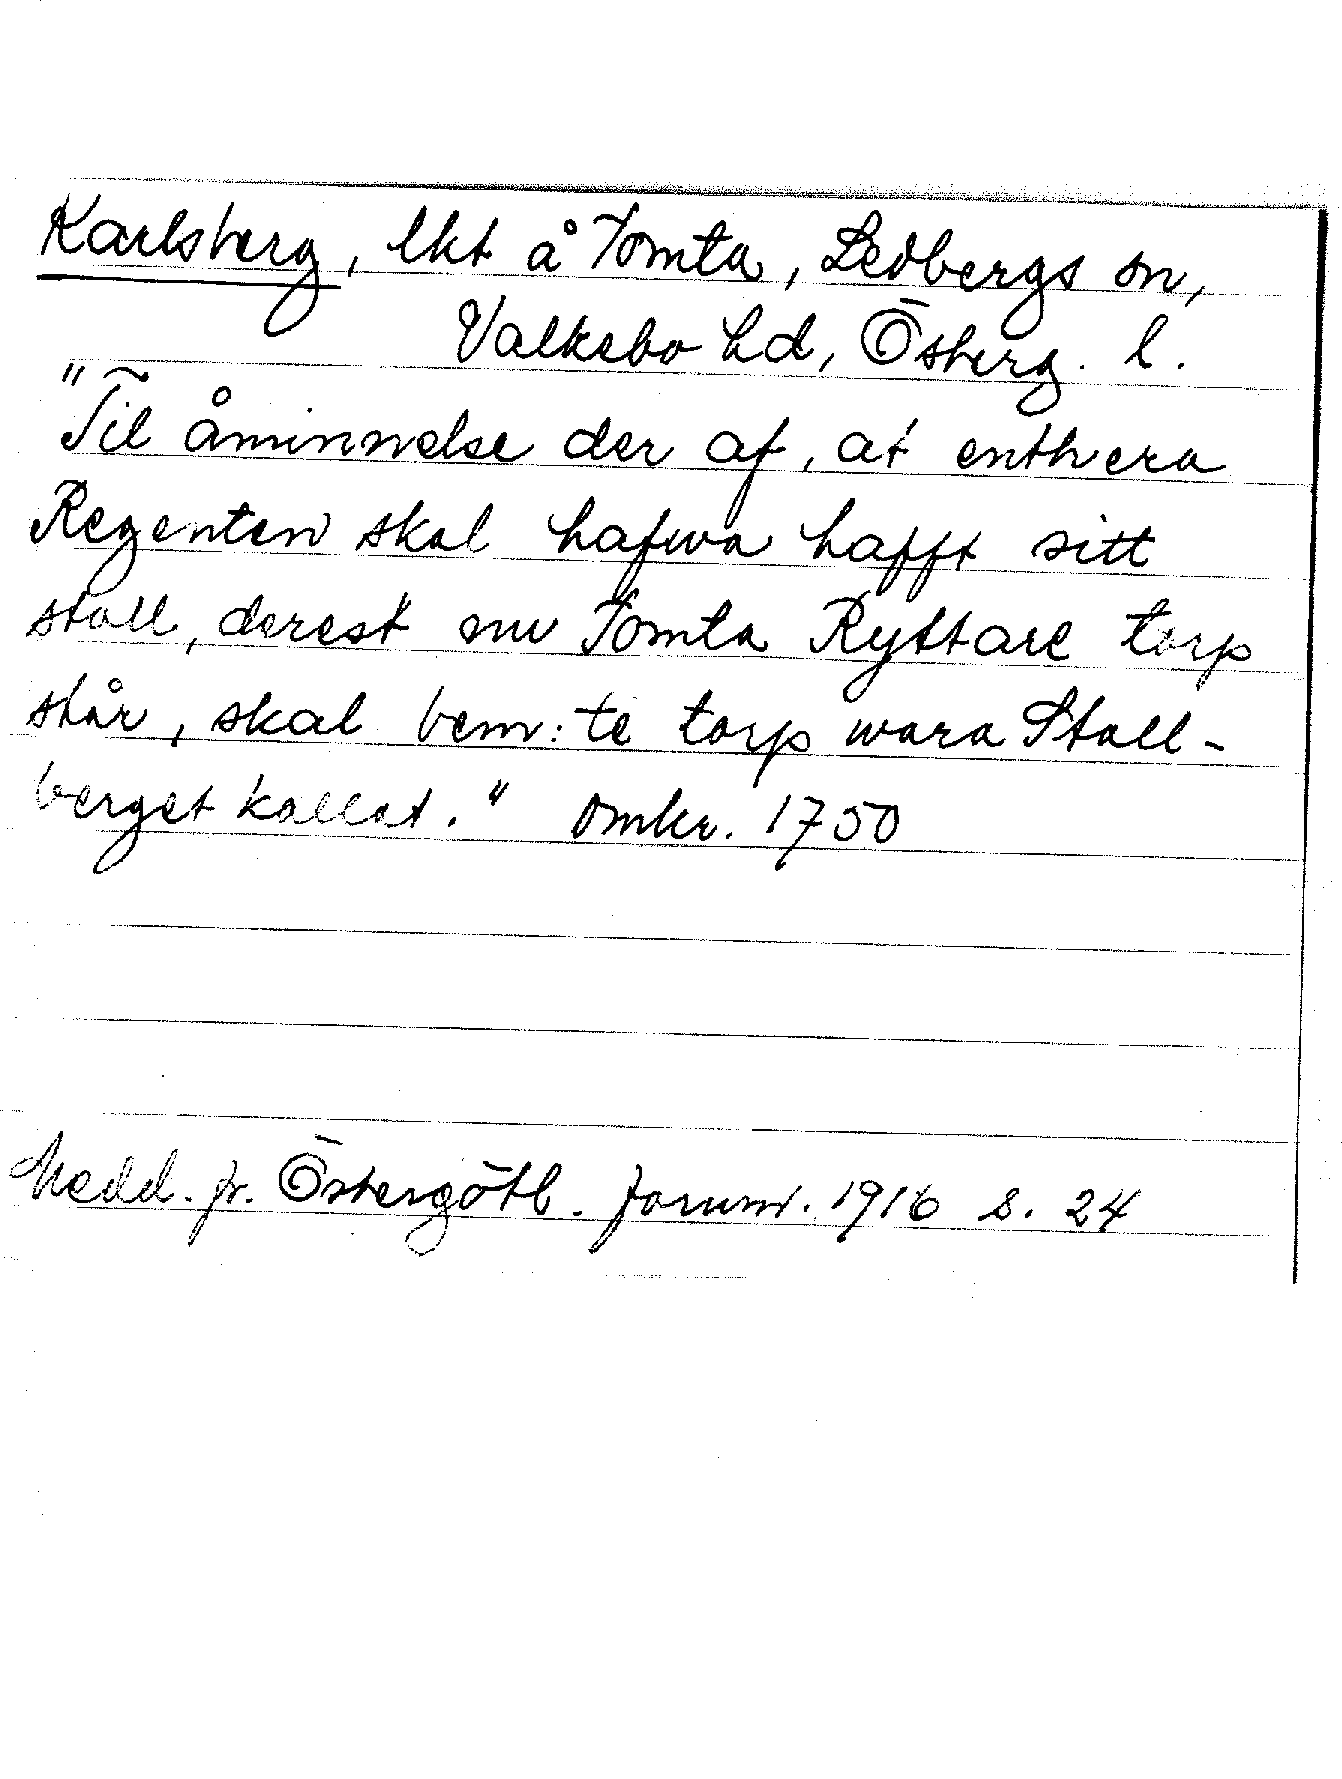 Karlsberg, lkt å Tomta, Ledbergs sn,
Valkebo hd, Österg. l.
"Til åminnelse der af, at enthera
Regenten skal hafwa hafft sitt
stall, derest nu Tomta Ryttare torp
står, skal bem:te torp wara Stall-
berget kallat." Omkr. 1750
Medd. fr. Östergötl. fornm. 1916 s. 24